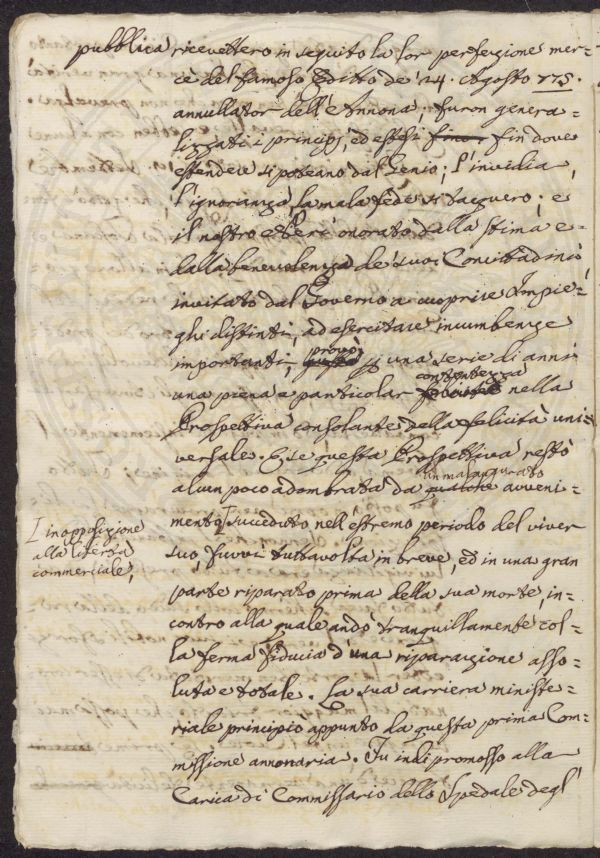 pubblica ricevettero in seguito la lor perfezione mer=
cè del famoso Editto de' 24. Agosto 1775.
annullator dell'Annona; furon genera=
lizzati i principj, ed estesi fino fin dove
estendere si poteano dal Genio; l'invidia,
l'ignoranza, la mala fede si tacquero; e
il nostro Neri onorato dalla stima e
dalla benevolenza de' suoi Concittadini
invitato dal Governo a cuoprire Impie=
ghi distinti, ad esercitare incumbenze
importanti, provò p una serie di anni
una piena e particolar contentezza nella
Prospettiva consolante della felicità uni=
versale. E se questa Prospettiva restò
alcun poco adombrata da un malaugurato
qualche avveni=
mento succeduto nell'estremo periodo del viver
I in opposizione
alla libertà
commerciale,
suo, fuvvi tuttavolta in breve, ed in una gran
parte riparato prima della sua morte, in=
contro alla quale andò tranquillamente col=
la ferma fiducia d'una riparazione asso=
luta e totale. La sua carriera ministe=
riale principiò appunto da questa prima Com=
missione annonaria. Fu indi promosso alla
Carica di Commissario dello Spedale degl'